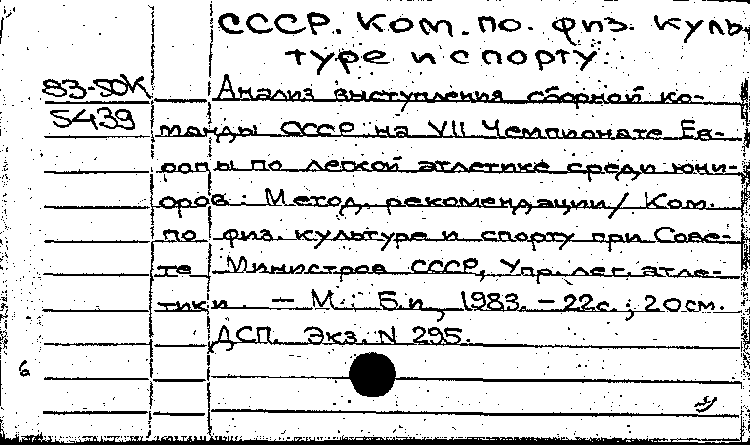 СССР. Ком. по. физ. куль-
туре и спорту.
83-50К Анализ выступления сборной ко-
5439 манды СССР на VII Чемпионате Ев-
ропы по легкой атлетике среди юни-
оров: Метод. рекомендации/ Ком.
по физ. культуре и спорту при Сове-
те Министров СССР, Упр. лег. атле-
тики. – М.: Б.и., 1983. – 22с.; 20см.
ДСП. Экз. N 295.
6